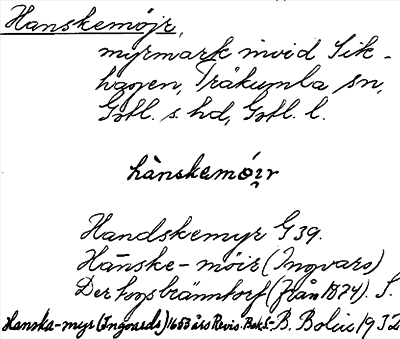 Hanskemöjr,
myrmark invid Sik-
hagen, Träkumla sn,
Gotl. s. hd, Gotl. l.
hànskemói̯r
Handskemyr G 39.
Hānske-möir (Ingvars)
Der togs bränntorf (från 1874). S.
Hanska-myr (Ingvards) 1653 års Revis. Bok S- B. Bolin 1932